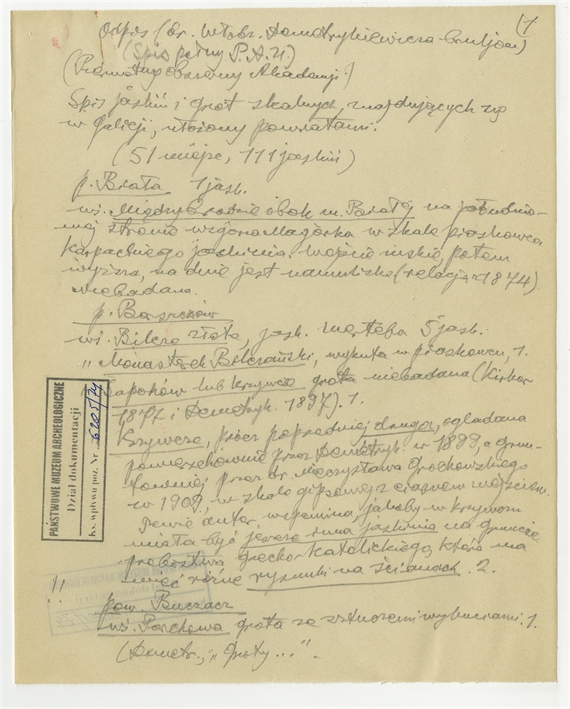 (1
Odpis (dr. Włodz. Demetrykiewicza
(Spis pełny P.A.U.)
Spis jaskiń i grot skalnych, znajdujących się
w Galicji, ułożony powiatami.
(51 miejsc, 111 jaskiń)
p. Biała 1 jask.
wś. Międzybrodzie obok m. Białej na południo-
wej stronie wzgórza Magórka w skale piaskowca
Karpackiego jaskinia. Wejście niskie, potem
wyższa, na dnie jest namulisko (relacja z 1874)
niebadana.
p. Borszczów
wś. Bilcze złote, jask. Werteba 5 jask.
" Monastyrek Bilczański, wykuta w piaskowcu, 1.
Sapohów lub Krzywcze grota niebadana (Kirkor
1877 i Demetryk. 1897). 1.
Krzywcze, prócz poprzedniej druga, oglądana
powierzchownie przez Demetryk. w 1899, a grun-
towniej przez dr. Mieczysława Orochowskiego
w 1909, w skale gipsowej z ciasnem wejściem.
Pewien autor wspomina jakoby w Krzywczu
miała być jeszcze inna jaskinia na gruncie
probostwa grecko Katolickiego, która ma
mieć różne rysunki na ścianach. 2.
pow. Buczacz
wś. Porchowa grota ze sztucznemi wykuciami. 1.
(Demetr., "Groty...".
PAŃSTWOWE MUZEUM ARCHEOLOGICZNE
Dział dokumentacji
Ks. wpływu poz. Nr